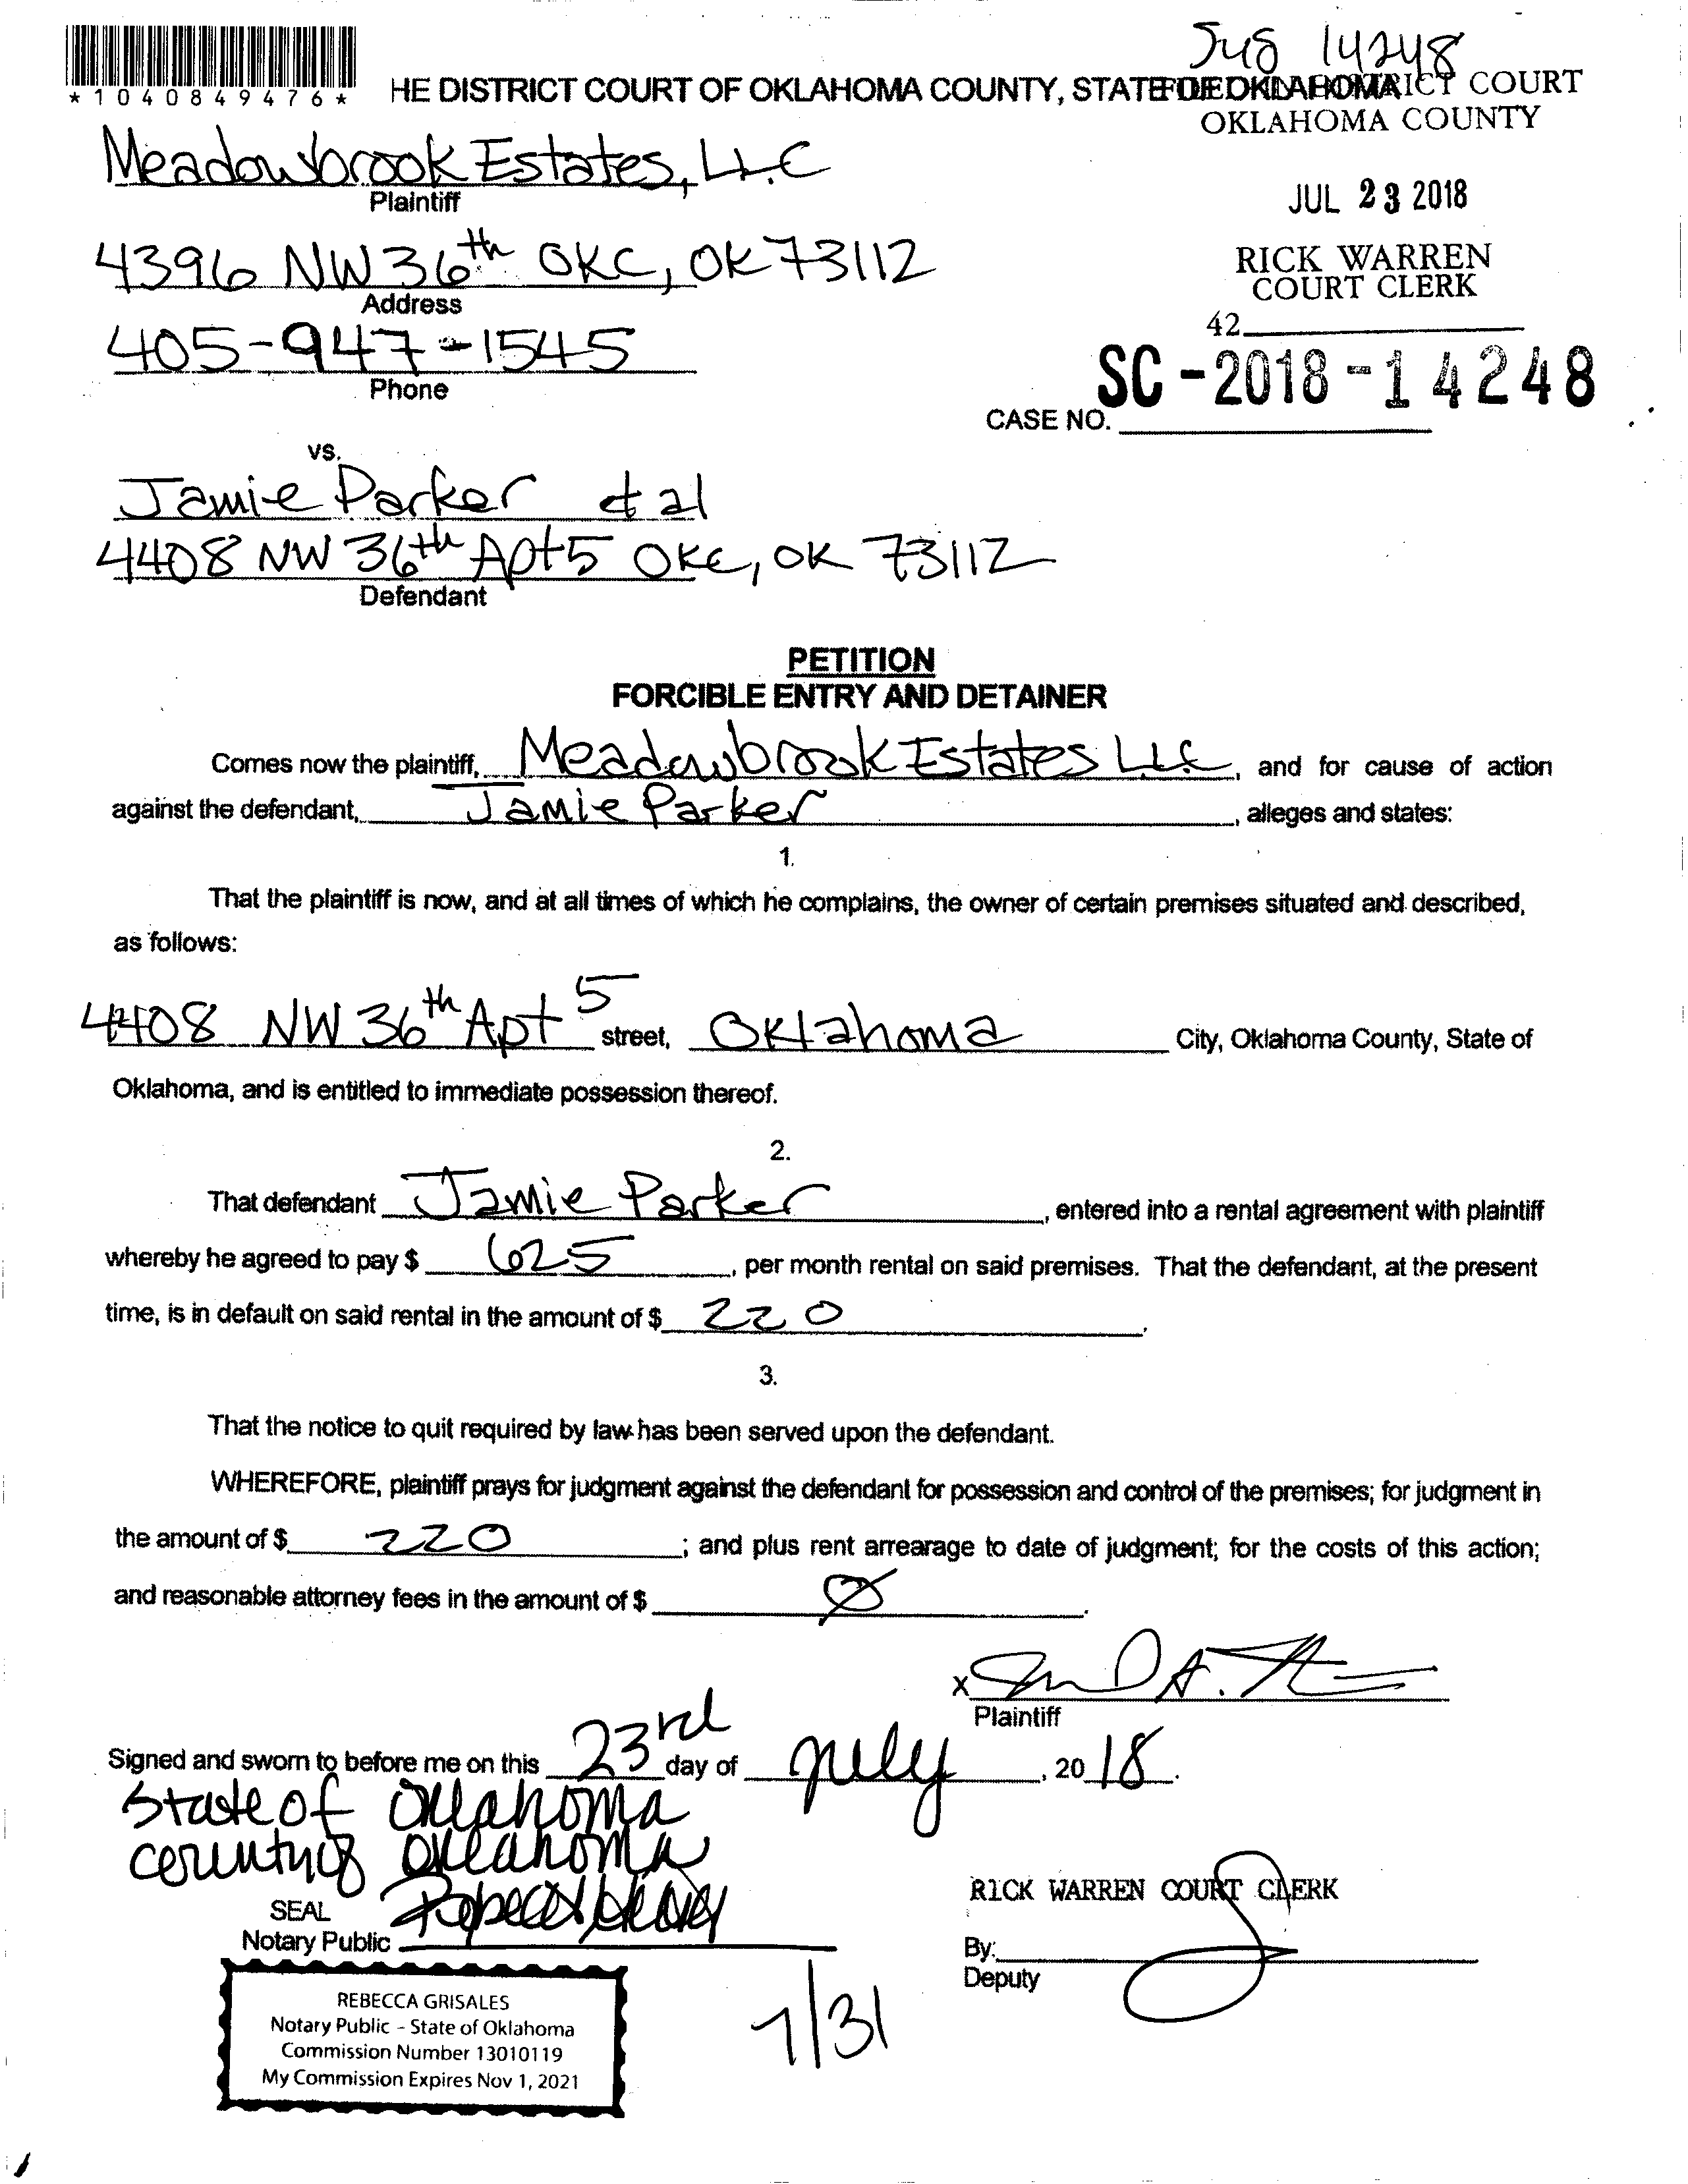 Jus 14248
*1040849476*
HE DISTRICT COURT OF OKLAHOMA COUNTY, STATE OF OKLAHOMA
FILED IN DISTRICT COURT
OKLAHOMA COUNTY
Meadowbrook Estates, LLC
Plaintiff
JUL 23 2018
4396 NW 36th OKC, OK 73112
Address
RICK WARREN
COURT CLERK
405-947-1545
Phone
42
SC-2018-14248
CASE NO.
vs.
Jamie Parker et al
4408 NW 36th Apt 5 OKC, OK 73112
Defendant
PETITION
FORCIBLE ENTRY AND DETAINER
Comes now the plaintiff, Meadowbrook Estates LLC, and for cause of action
against the defendant, Jamie Parker, alleges and states:
1.
That the plaintiff is now, and at all times of which he complains, the owner of certain premises situated and described,
as follows:
4408 NW 36th Apt 5 street, Oklahoma City, Oklahoma County, State of
Oklahoma, and is entitled to immediate possession thereof.
2.
That defendant Jamie Parker, entered into a rental agreement with plaintiff
whereby he agreed to pay $ 625, per month rental on said premises. That the defendant, at the present
time, is in default on said rental in the amount of $ 220.
3.
That the notice to quit required by law has been served upon the defendant.
WHEREFORE, plaintiff prays for judgment against the defendant for possession and control of the premises; for judgment in
the amount of $ 220; and plus rent arrearage to date of judgment; for the costs of this action;
and reasonable attorney fees in the amount of $ Ø.
x
Plaintiff
Signed and sworn to before me on this 23rd day of July, 2018.
State of Oklahoma
County of Oklahoma
SEAL
Notary Public
RICK WARREN COURT CLERK
By:
Deputy
REBECCA GRISALES
Notary Public - State of Oklahoma
Commission Number 13010119
My Commission Expires Nov 1, 2021
7/31